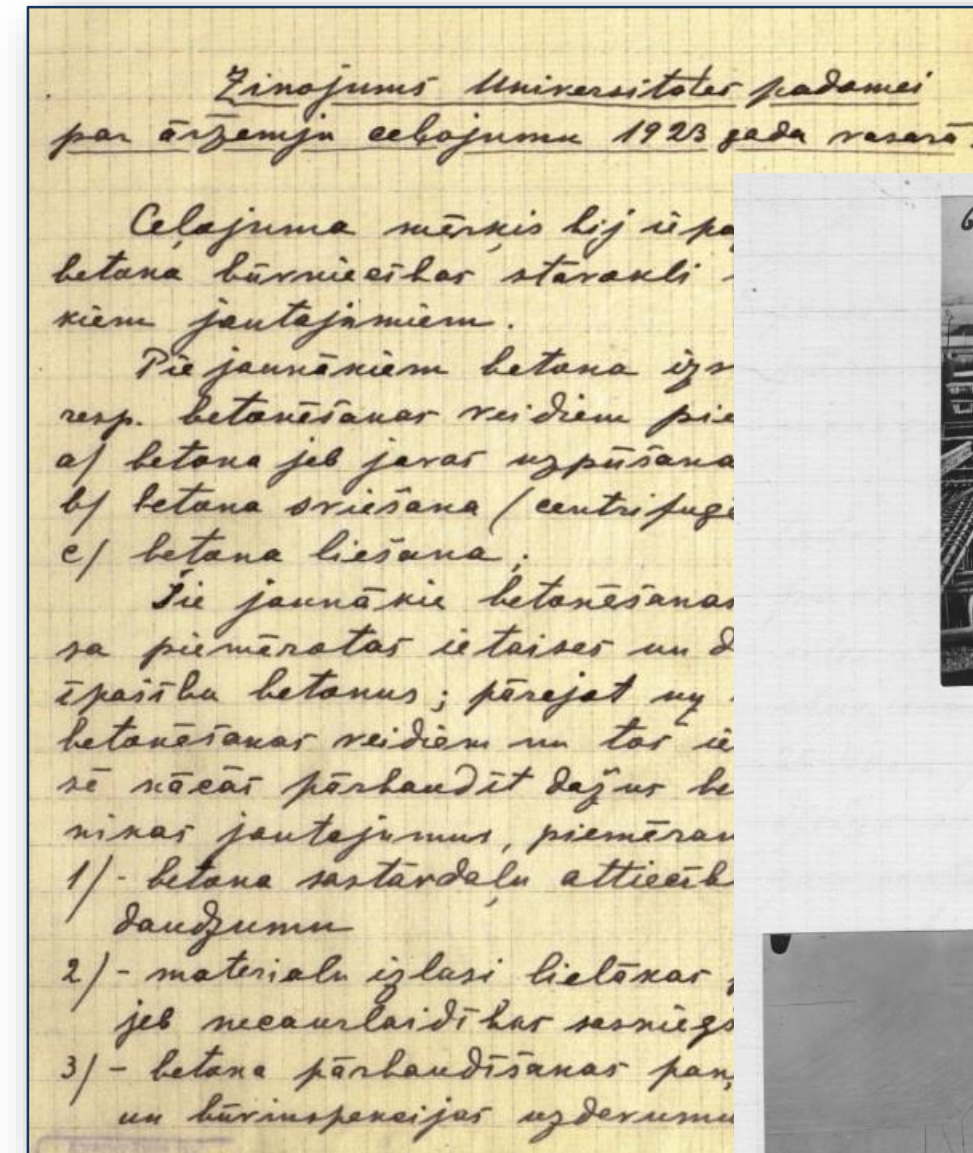 Ziņojums Universitates padomei
par ārzemju ceļojumu 1923 gada vasarā.
Ceļojuma mērķis bij iepa
betona būvniecības stāvokli
kiem jautajumiem.
Pie jaunākiem betona izv
resp. betonēšanas veidiem pie
a/ betona jeb javas uzpūšana
b/ betona sviešana (centrifugē
c/ betona liešana.
Šie jaunākie betonēšanas
sa piemērotas ietaises un d
īpašību betonus; pārejot uz
betonēšanas veidiem un tos ie
sē nācās pārbaudīt dažus be
nikas jautajumus, piemēram
1/- betona sastāvdaļu attiecīb
daudzumu
2/- materialu izlasi lielākas
jeb necaurlaidības sasniegš
3/- betona pārbaudīšanas paņ
un būvinspekcijas uzdevumu
6